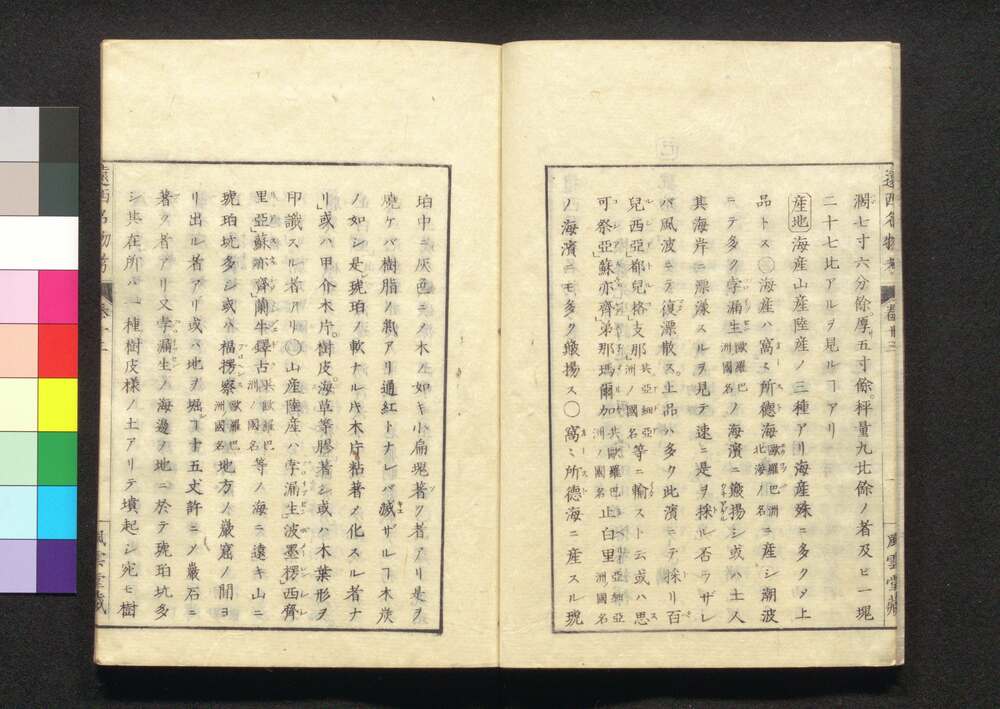 遠西名物考
濶七寸六分餘。厚五寸餘。秤量九比餘ノ者及ビ一塊
二十七比アルヲ見ルコアリ
産地 海産山産陸産ノ三種アリ海産殊ニ多クメ上
品トス○海産ハ窩々所德海歐羅巴洲北海ノ名ニ産シ潮波
ニテ多ク孛漏生歐羅巴洲國名ノ海濱ニ簸揚シ或ハ土人
其海岸ニ漂漾スルヲ見テ速ニ是ヲ採ル否ラザレ
バ風波ニテ復漂散ス。上品ハ多ク此濱ニテ採リ百
兒西亞都兒格支那共亞細亞洲ノ國名等ニ輸スト云或ハ思
可祭亞蘇亦齊弟那瑪爾加共歐羅巴洲ノ國名止白里亞細亞洲國名
ノ海濱ニモ多ク簸揚ス○窩々所德海ニ産スル琥
風雲堂藏
遠西名物考
珀中ニ灰色ニメ木ノ如キ小扁塊著ク者アリ是ヲ
燒ケバ樹脂ノ氣アリ通紅トナレバ滅ザルコ木炭
ノ如シ是琥珀ノ軟ナル片木片粘著メ化スル者ナ
リ」或ハ甲介木片。樹皮海草等膠著シ或ハ木葉形ヲ
印識スル者アリ○山産陸産ハ孛漏生波墨愣西齊
里亞蘇亦齊蘭牛鐸古共歐羅巴洲ノ國名等ノ海ニ遠キ山ニ
琥珀坑多シ或ハ福愣察歐羅巴洲國名地方ノ巖窟ノ間ヨ
リ出ル者アリ或ハ地ヲ堀ルコ十五丈許ニメ巖石ニ
著ク者アリ又孛漏生ノ海邊ノ地ニ於テ琥珀坑多
シ其在所ハ一種樹皮樣ノ土アリテ墳起シ宛モ樹
風雲堂藏